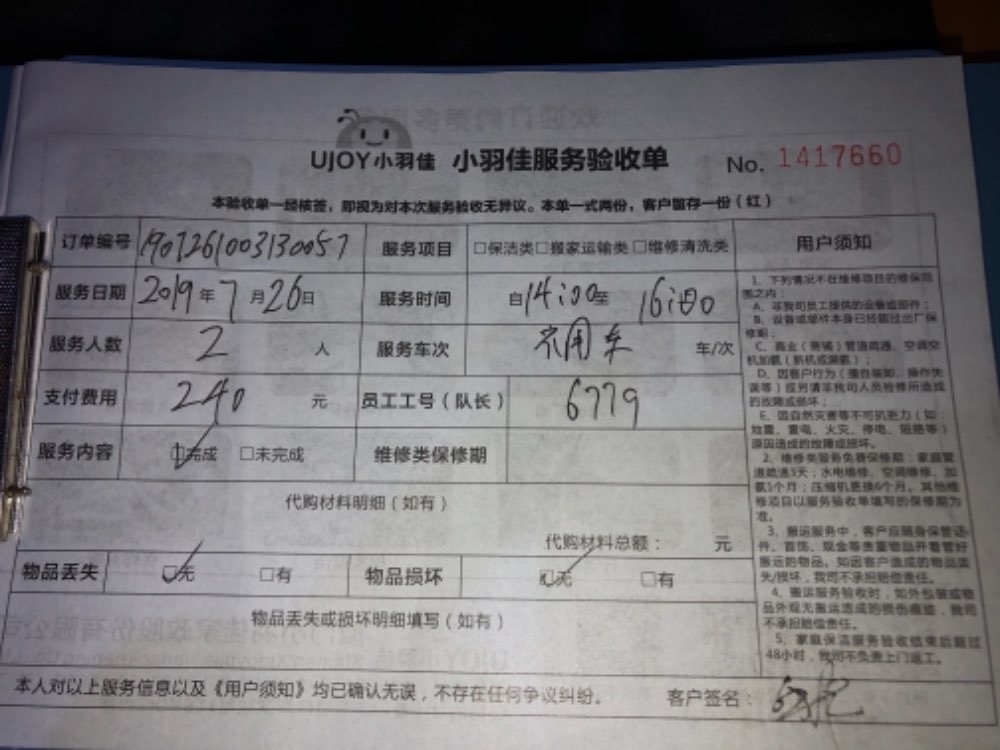 UJOY小羽佳 小羽佳服务验收单 No. 1417660
本验收单一经核签，即视为对本次服务验收无异议。本单一式两份，客户留存一份（红）
订单编号 1907261003130057 服务项目 □保洁类□搬家运输类□维修清洗类
服务日期 2019年7月26日 服务时间 自14:00至16:00
服务人数 2 人 服务车次 用车 车/次
支付费用 240 元 员工工号（队长） 6779
服务内容 □完成 □未完成 维修类保修期
代购材料明细（如有）
代购材料总额： 元
物品丢失 □无 □有 物品损坏 □无 □有
物品丢失或损坏明细填写（如有）
本人对以上服务信息以及《用户须知》均已确认无误，不存在任何争议纠纷。 客户签名：
用户须知
1、下列情况不在维修项目的维保范
围之内：
A、非我司员工提供的设备或部件；
B、设备或部件本身已经超过出厂保
修期；
C、商业（商铺）管道疏通、空调空
机加氨（新机或漏氨）；
D、因客户行为（擅自装卸、操作失
误等）或另请非我司人员检修所造成
的故障或损坏；
E、因自然灾害等不可抗拒力（如：
地震、雷电、火灾、停电、阻路等）
原因造成的故障或损坏。
2、维修类服务免费保修期：家庭管
道疏通3天；水电维修、空调维修、加
氨1个月；压缩机更换6个月。其他维
修项目以服务验收单填写的保修期为
准。
3、搬运服务中，客户应随身保管证
件、首饰、现金等贵重物品并看管好
搬运的物品。如因客户造成的物品丢
失/损坏，我司不承担赔偿责任。
4、搬运服务验收时，如外包装或物
品外观无搬运造成的损伤痕迹，我司
不承担赔偿责任。
5、家庭保洁服务验收结束后超过
48小时，我司不负责上门返工。